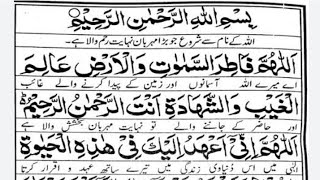 بِسْمِ اللهِ الرَّحْمٰنِ الرَّحِيْمِ
اللہ کے نام سے شروع جو بڑا مہربان نہایت رحم والا ہے۔
اَللّٰهُمَّ فَاطِرَ السَّمٰوٰتِ وَالْاَرْضِ عَالِمَ
اے میرے اللہ آسمانوں اور زمین کے پیدا کرنے والے غائب
الْغَيْبِ وَالشَّهَادَةِ اَنْتَ الرَّحْمٰنُ الرَّحِيْمُ
اور حاضر کے جاننے والے تو نہایت مہربان بخشش والا ہے
اَللّٰهُمَّ اِنِّيْ اَعْهَدُ اِلَيْكَ فِيْ هٰذِهِ الْحَيٰوةِ
الٰہی میں اس دنیاوی زندگی میں تیرے ساتھ عہد و اقرار کرتا